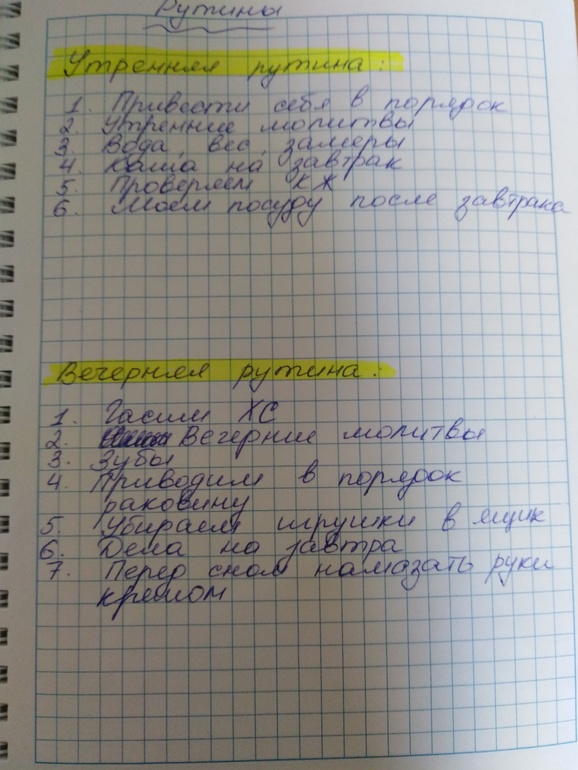 Рутины
Утренняя рутина:
1. Привести себя в порядок
2. Утренние молитвы
3. Вода, вес, замеры
4. Каша на завтрак
5. Проверяем КЖ
6. Моем посуду после завтрака
Вечерняя рутина:
1. Гасим ХС
2. Вечерние молитвы
3. Зубы
4. Приводим в порядок
раковину
5. Убираем игрушки в ящик
6. Дела на завтра
7. Перед сном намазать руки
кремом